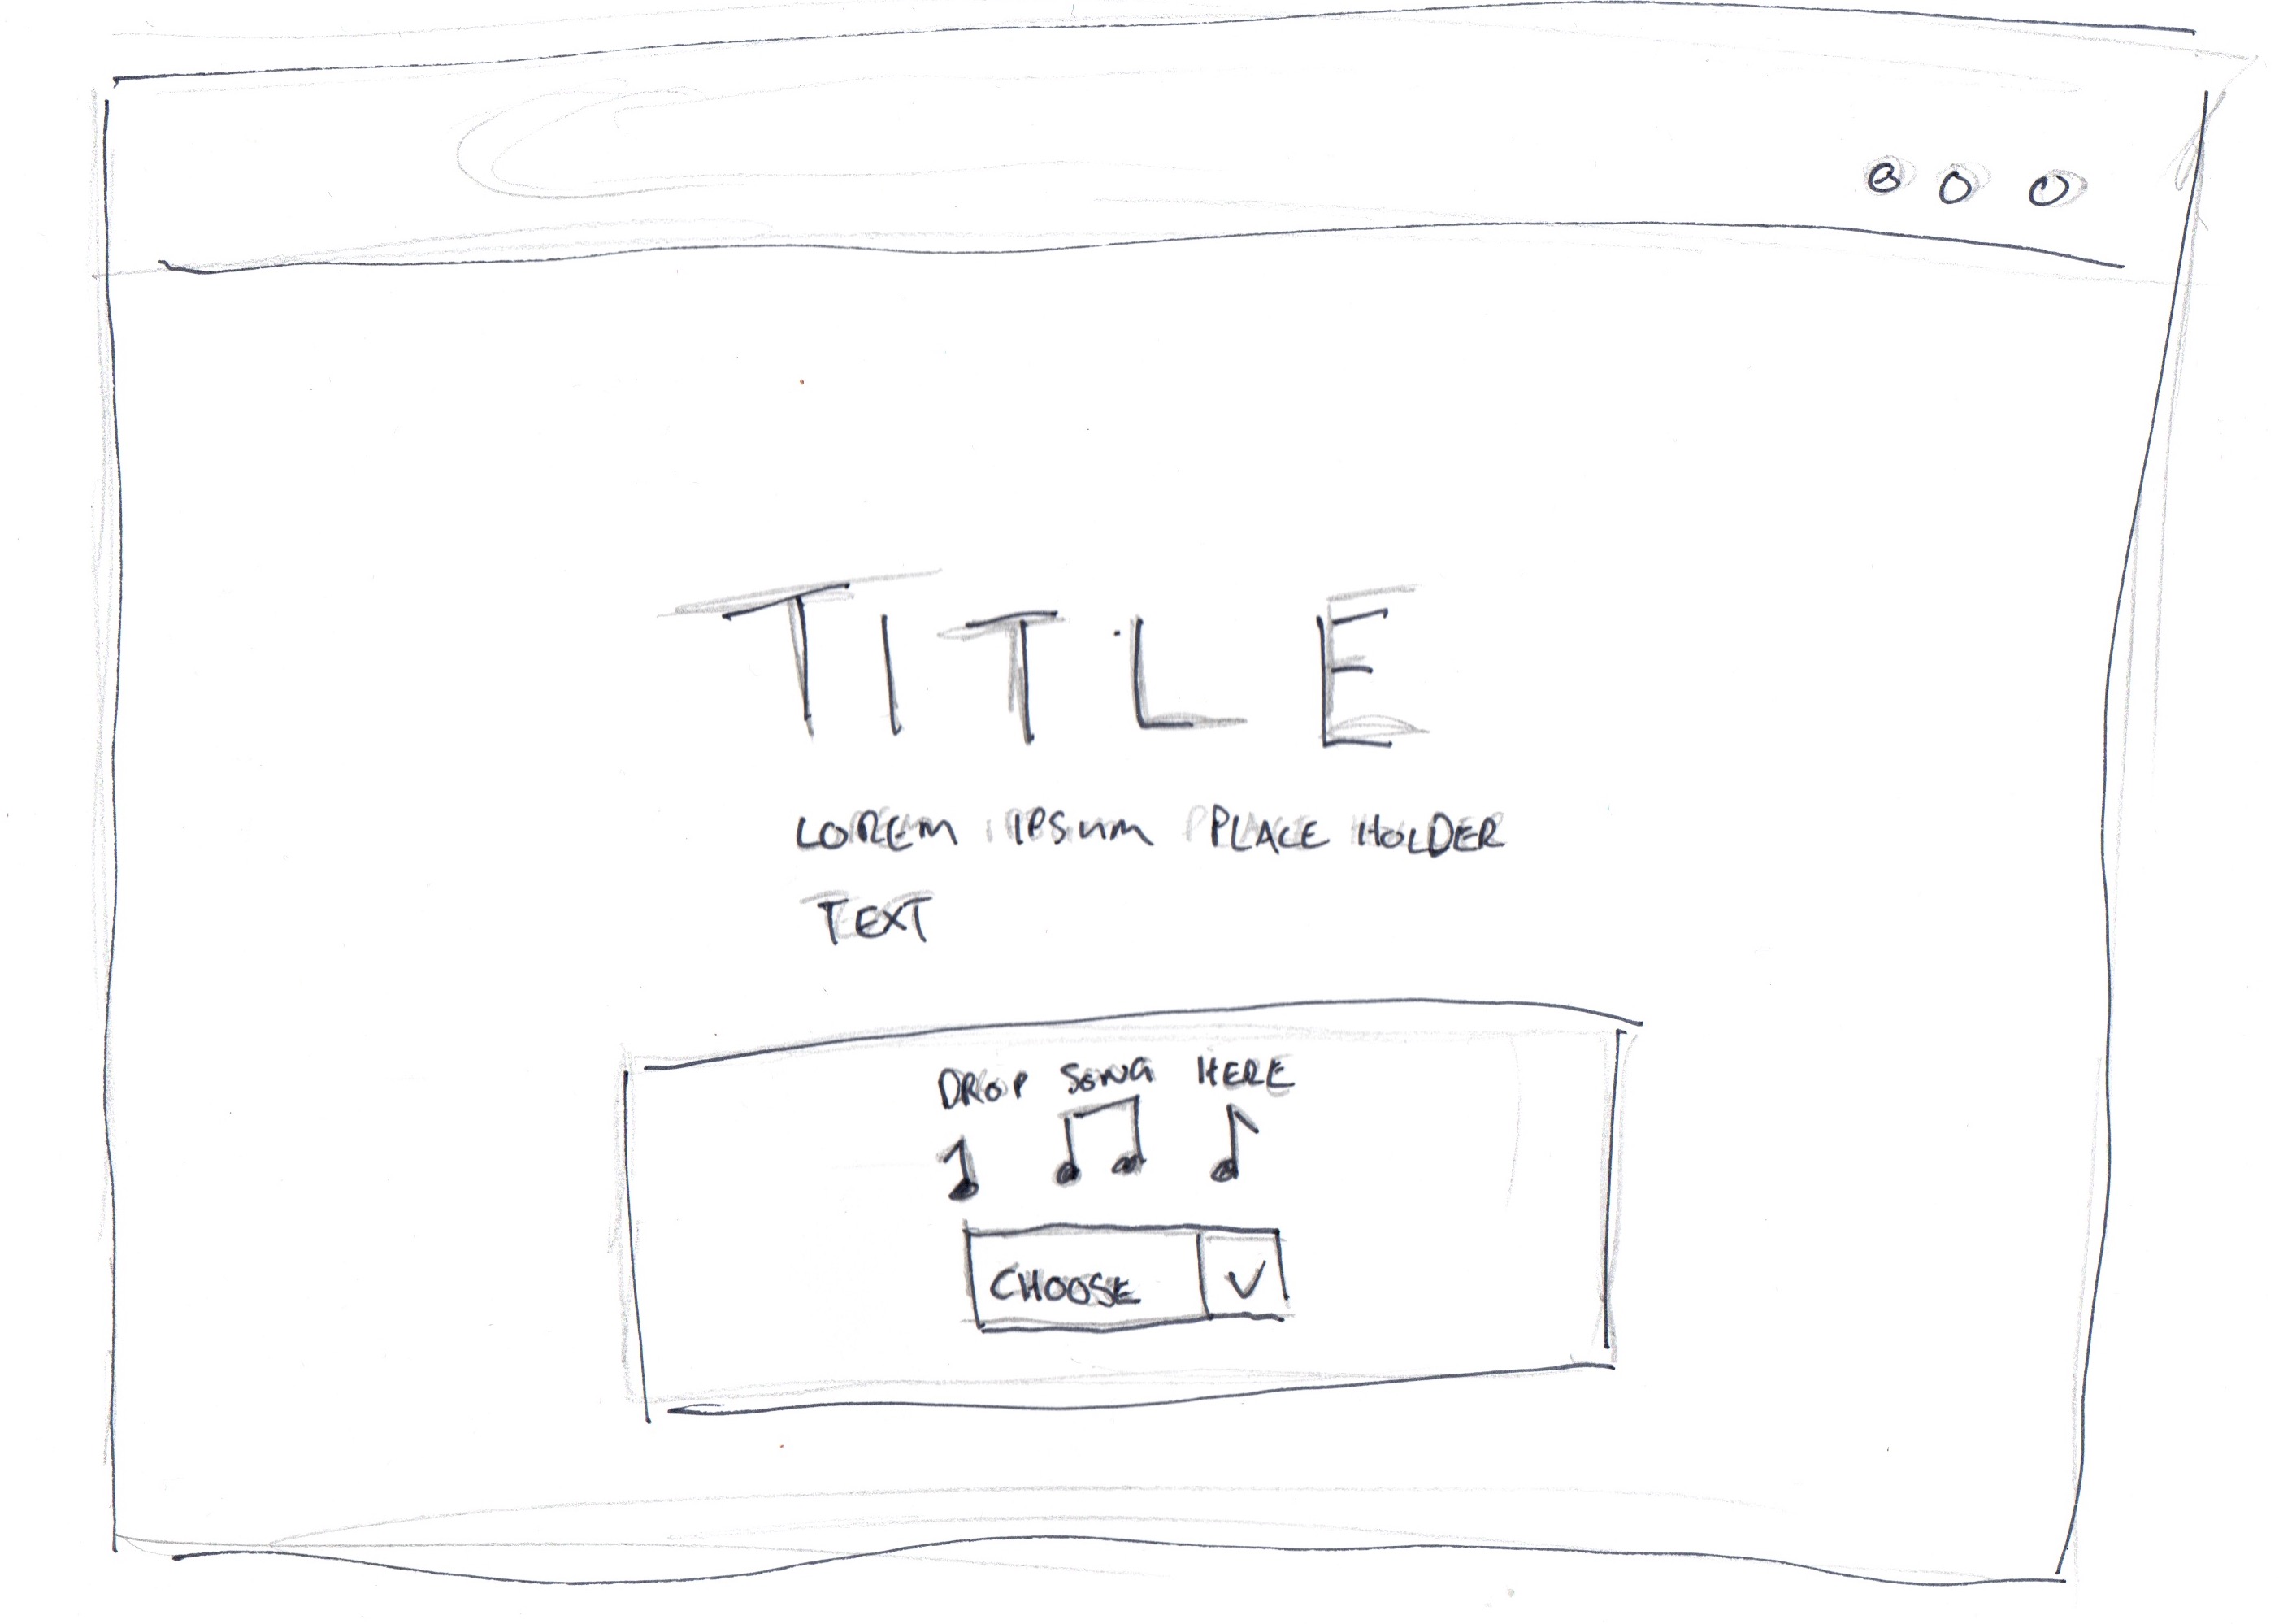 TITLE
LOREM IPSUM PLACE HOLDER
TEXT
DROP SONG HERE
CHOOSE V